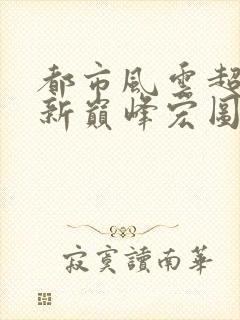 都市風雲超
新巔峰宏圖
寂寞讀南華